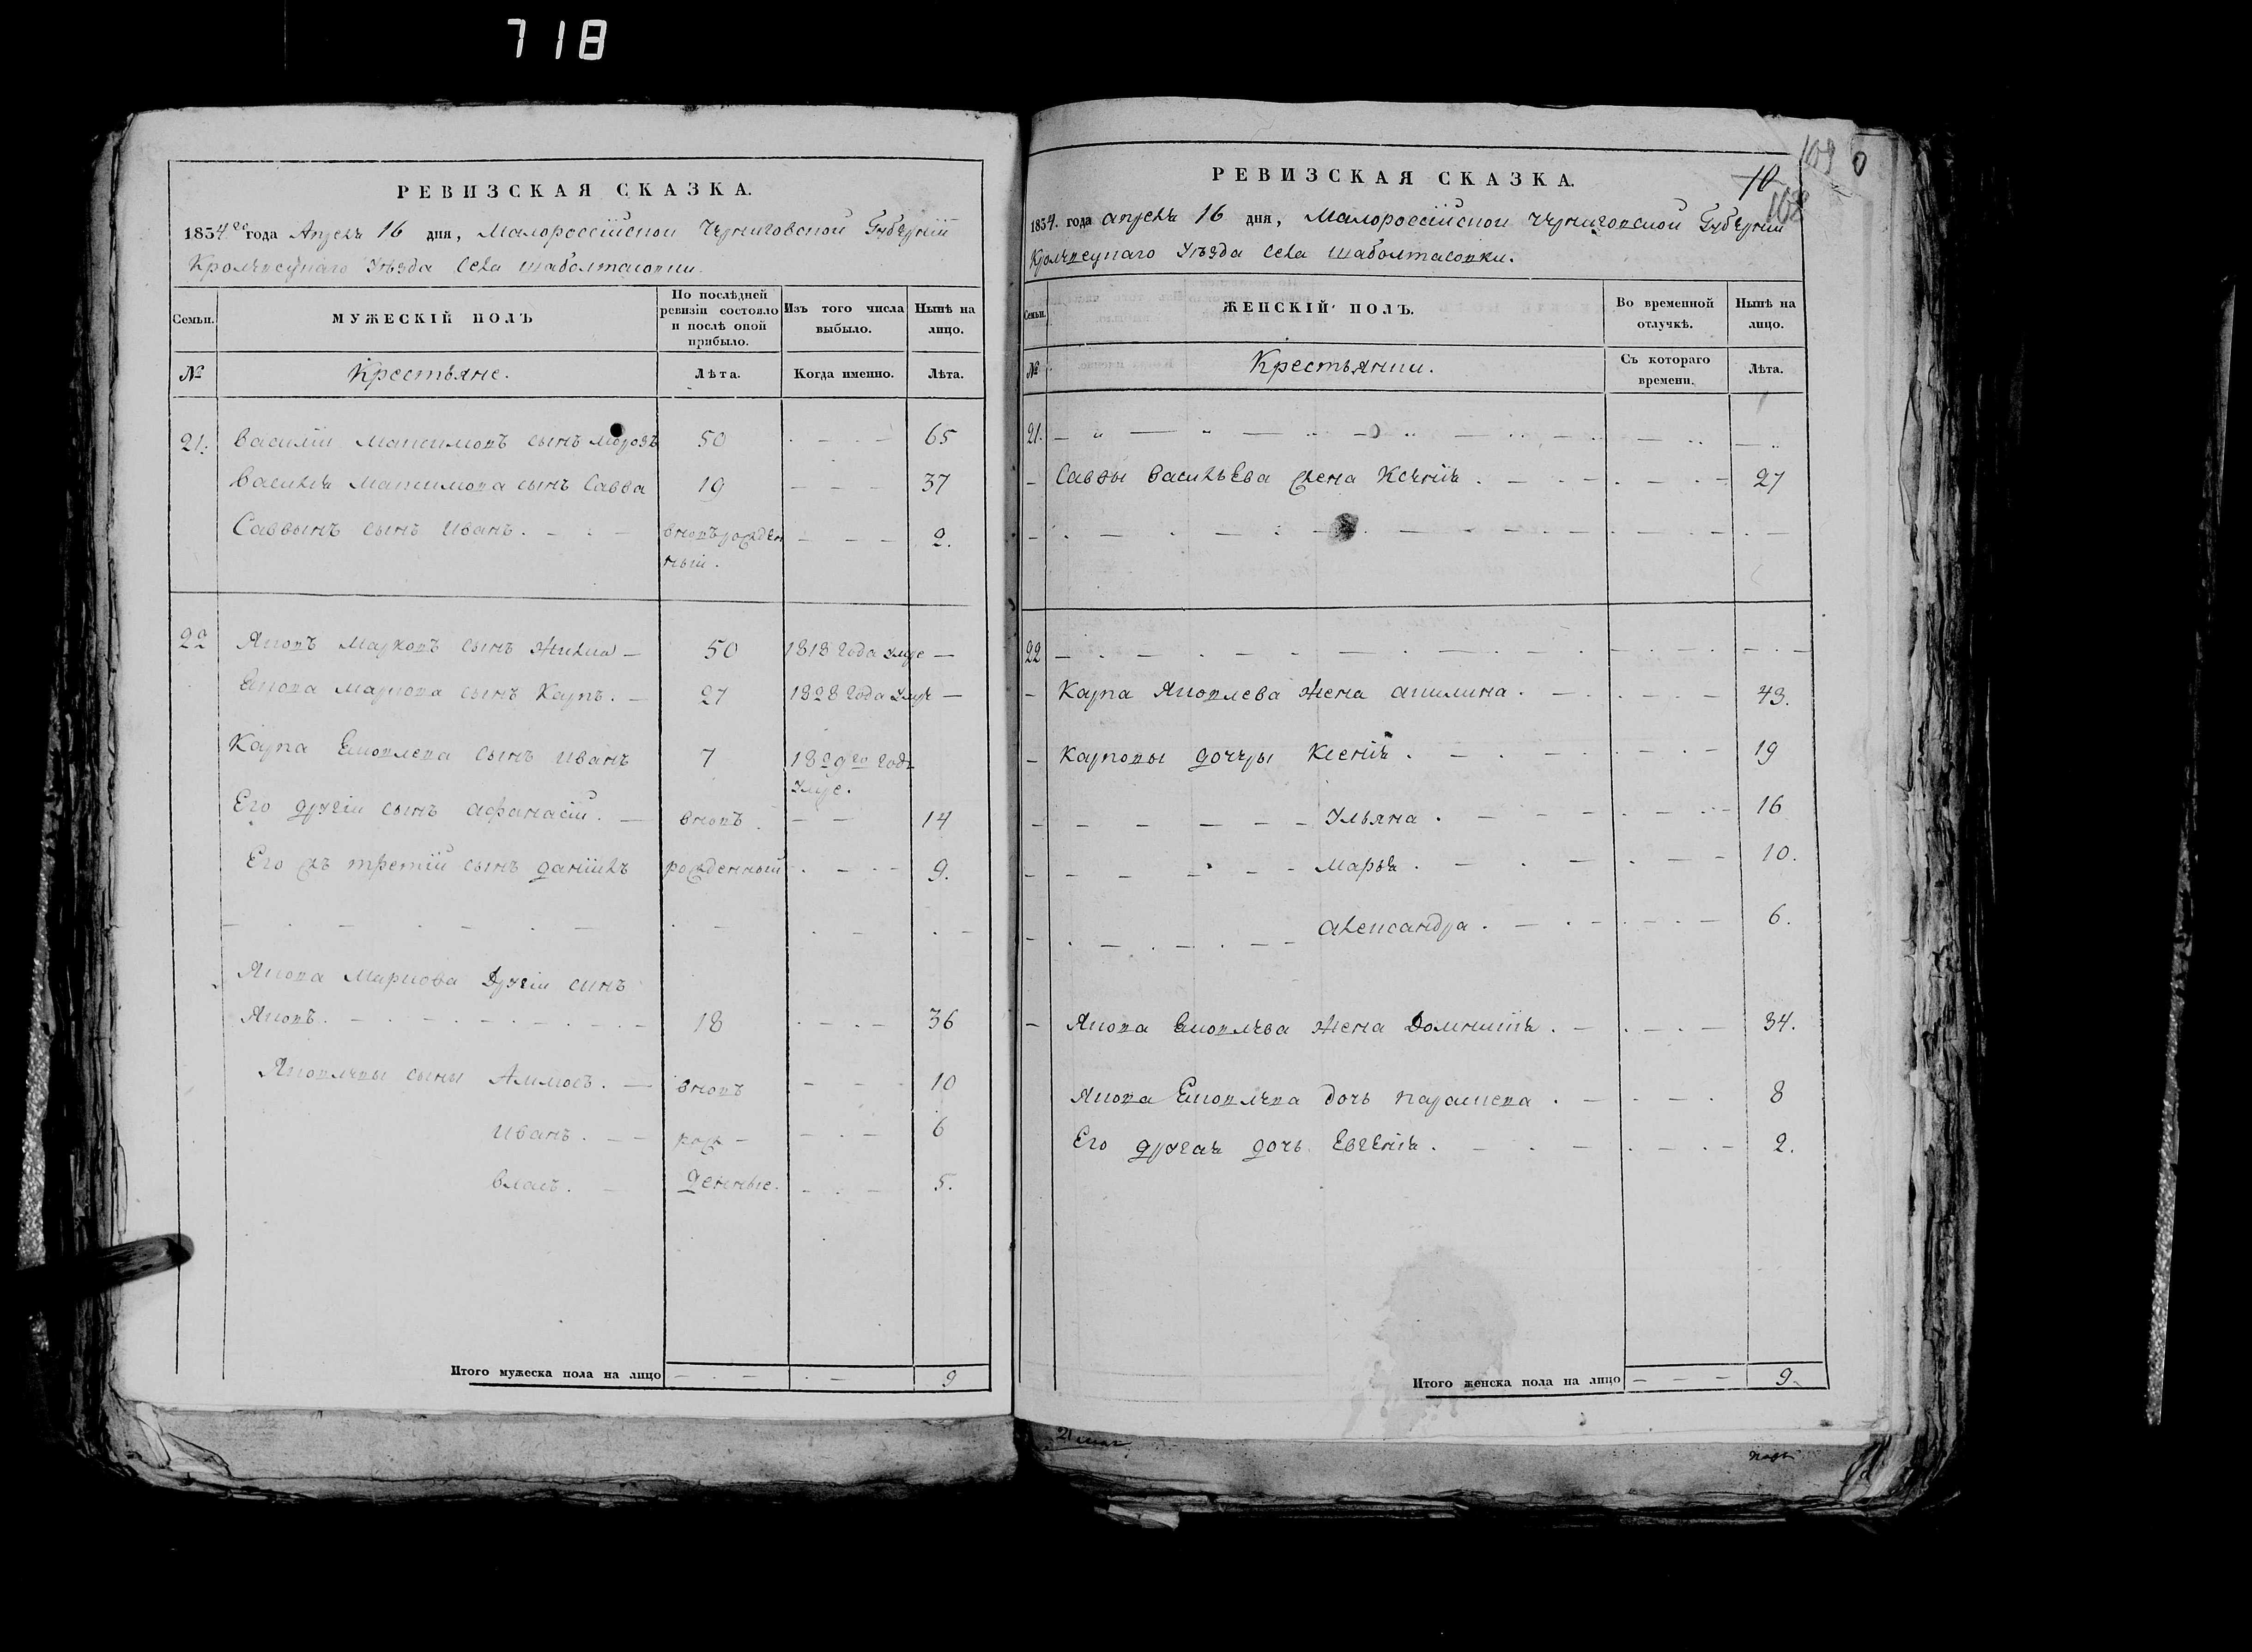 718
РЕВИЗСКАЯ СКАЗКА.
1834.го года Апреля 16 дня, Малороссійской Черниговской Губерніи
Кролевецкаго Уѣзда Села Шаболтасовки.
Семьи.
МУЖЕСКІЙ ПОЛЪ
По послѣдней ревизіи состояло и послѣ оной прибыло.
Изъ того числа выбыло.
Нынѣ на лицо.
№
Крестьяне.
Лѣта.
Когда именно.
Лѣта.
21. Василій Максимовъ сынъ Морозъ 50 65
Василия Максимова сынъ Савва 19 37
Саввынъ сынъ Иванъ. вновърожден 2.
ный.
22 Яковъ Марковъ сынъ 50 1818 года умре
Якова Маркова сынъ Карпъ. 27 1828 года умре
Карпа Яковлева сынъ Иванъ 7 1829го года
умре.
Его другій сынъ Афанасій. вновъ 14
Его жъ третій сынъ Даніилъ рожденный 9.
Якова Маркова Другій синъ
Яковъ. 18 36
Яковлевы сыны Аммосъ. вновъ 10
Иванъ. рож- 6
Власъ. денные. 5.
Итого мужеска пола на лицо 9
109
10
108
РЕВИЗСКАЯ СКАЗКА.
1834. года апреля 16 дня, Малороссійской Черниговской Губерніи
Кролевецкаго Уѣзда Села Шаболтасовки.
Семьи.
ЖЕНСКІЙ ПОЛЪ.
Во временной отлучкѣ.
Нынѣ на лицо.
№
Крестьянки.
Съ котораго времени.
Лѣта.
21.
Саввы Васильева жена Ксения 27
22
Карпа Яковлева жена Акилина. 43.
Карповы дочеры Ксения. 19
Ульяна. 16
Марья. 10.
Александра. 6.
Якова Яковлева жена Домникия. 34.
Якова Яковлева дочь Параскева. 8
Его другая дочь Евгения. 2.
Итого женска пола на лицо 9.